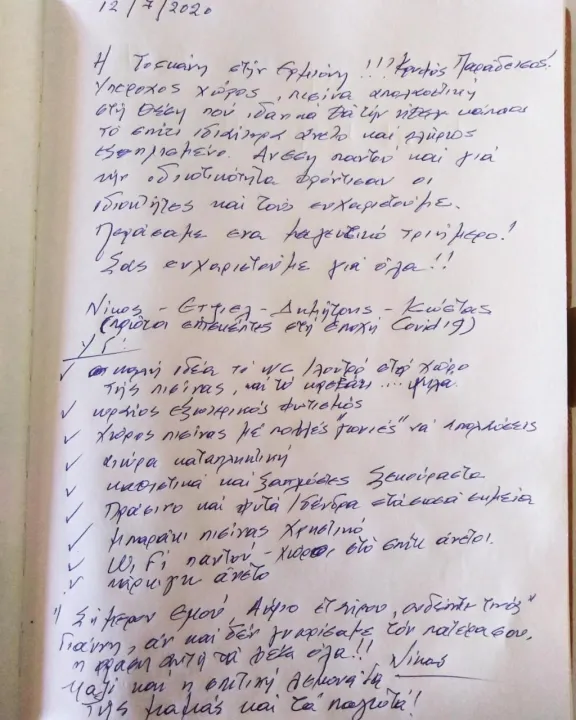 12/7/2020
Η Τοσκάνη στήν Ερμιόνη!!! Κρυφός Παράδεισος!
Υπέροχος χώρος, πισίνα απολαυστική
στή θέση πού ιδανικά θα τήν ήθελε κάποιος
το σπίτι ιδιαίτερα άνετο και πλήρως
εξοπλισμένο. Ανεση παντού και γιά
την ιδιωτικότητα φρόντισαν οι
ιδιοκτήτες και τους ευχαριστούμε.
Περάσαμε ένα μαγευτικό τριήμερο!
Σας ευχαριστούμε γιά όλα!!
Νίκος - Ετιέλ - Δημήτρης - Κώστας
(πρώτοι επισκέπτες στή εποχή Covid 19)
Υ.Γ:
✓ καλή ιδέα τό wc/λουτρό στό χώρο
της πισίνας, και τό κρεβάτι ... ψηλα.
✓ ωραίος εξωτερικός φωτισμός
✓ χώρος πισίνας με πολλές "γωνιές" νά απολαύσεις
✓ αιώρα καταπληκτική
✓ καθιστικά και ξαπλώστρες ξεκούραστα
✓ Πράσινο και φυτά/δένδρα στά σωστά σημεία
✓ μπαράκι πισίνας χρηστικό
✓ Wi Fi παντού - χώροι στό σπίτι άνετοι.
✓ πάρκιγκ άνετο
"Σήμερον εμού, Αύριο ετέρου, ουδέποτε τινός"
Γιάννη, αν και δέν γνωρίσαμε τόν πατέρα σου,
η φράση αυτή τα λέει όλα!!
Μαζί και η σπιτική λεμονάδα Νίκος
της μαμάς και τα παγωτά!